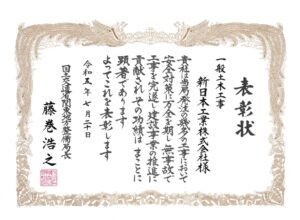 表彰状
一般土木工事
新日本工業株式会社様
貴社は当局発注の幾多の工事において
安全対策に万全を期し無事故で
工事を完遂し建設事業の推進に
貢献されその功績はまことに
顕著であります
よってこれを表彰します
令和五年七月二十日
国土交通省関東地方整備局長
藤巻浩之